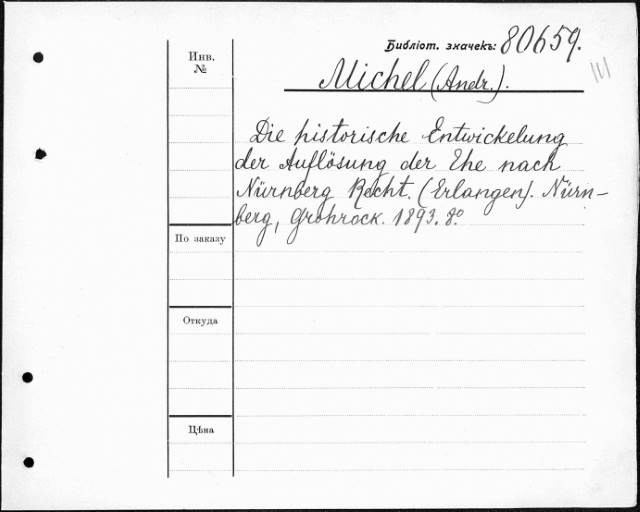 Библіот. значекъ: 80659.
Инв.
№
Michel (Andr.).
Die historische Entwickelung
der Auflösung der Ehe nach
Nürnberg Recht. (Erlangen). Nürn-
berg, Grohrock. 1893. 8º
По заказу
Откуда
Цѣна